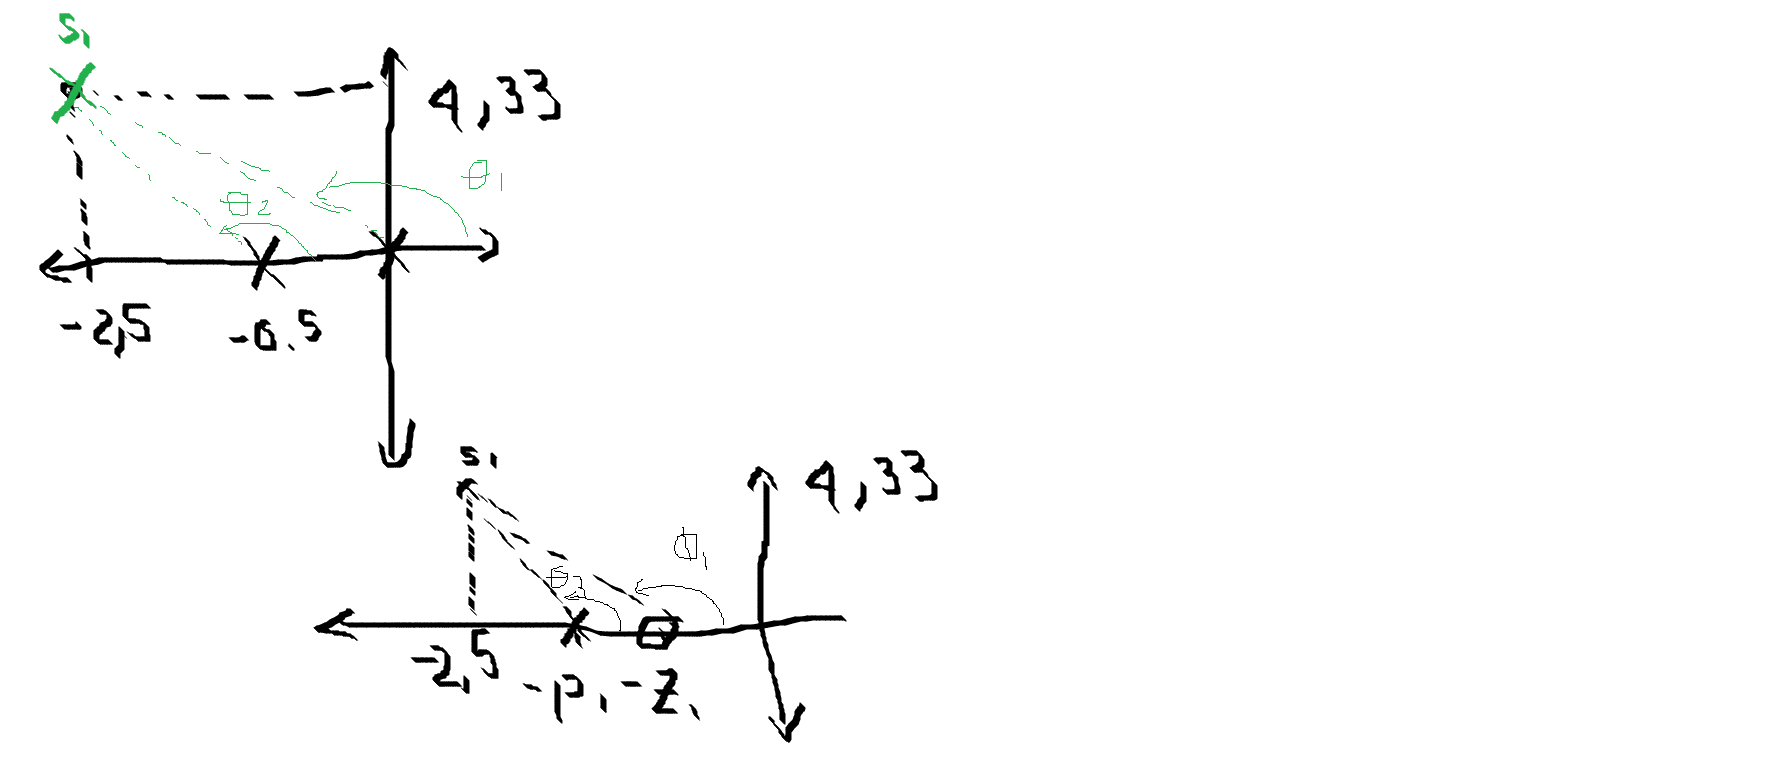 S₁
4,33
θ₁
θ₂
-2,5
-0.5
S₁
4,33
θ₁
θ₂
-2,5
-p₁
-z₁